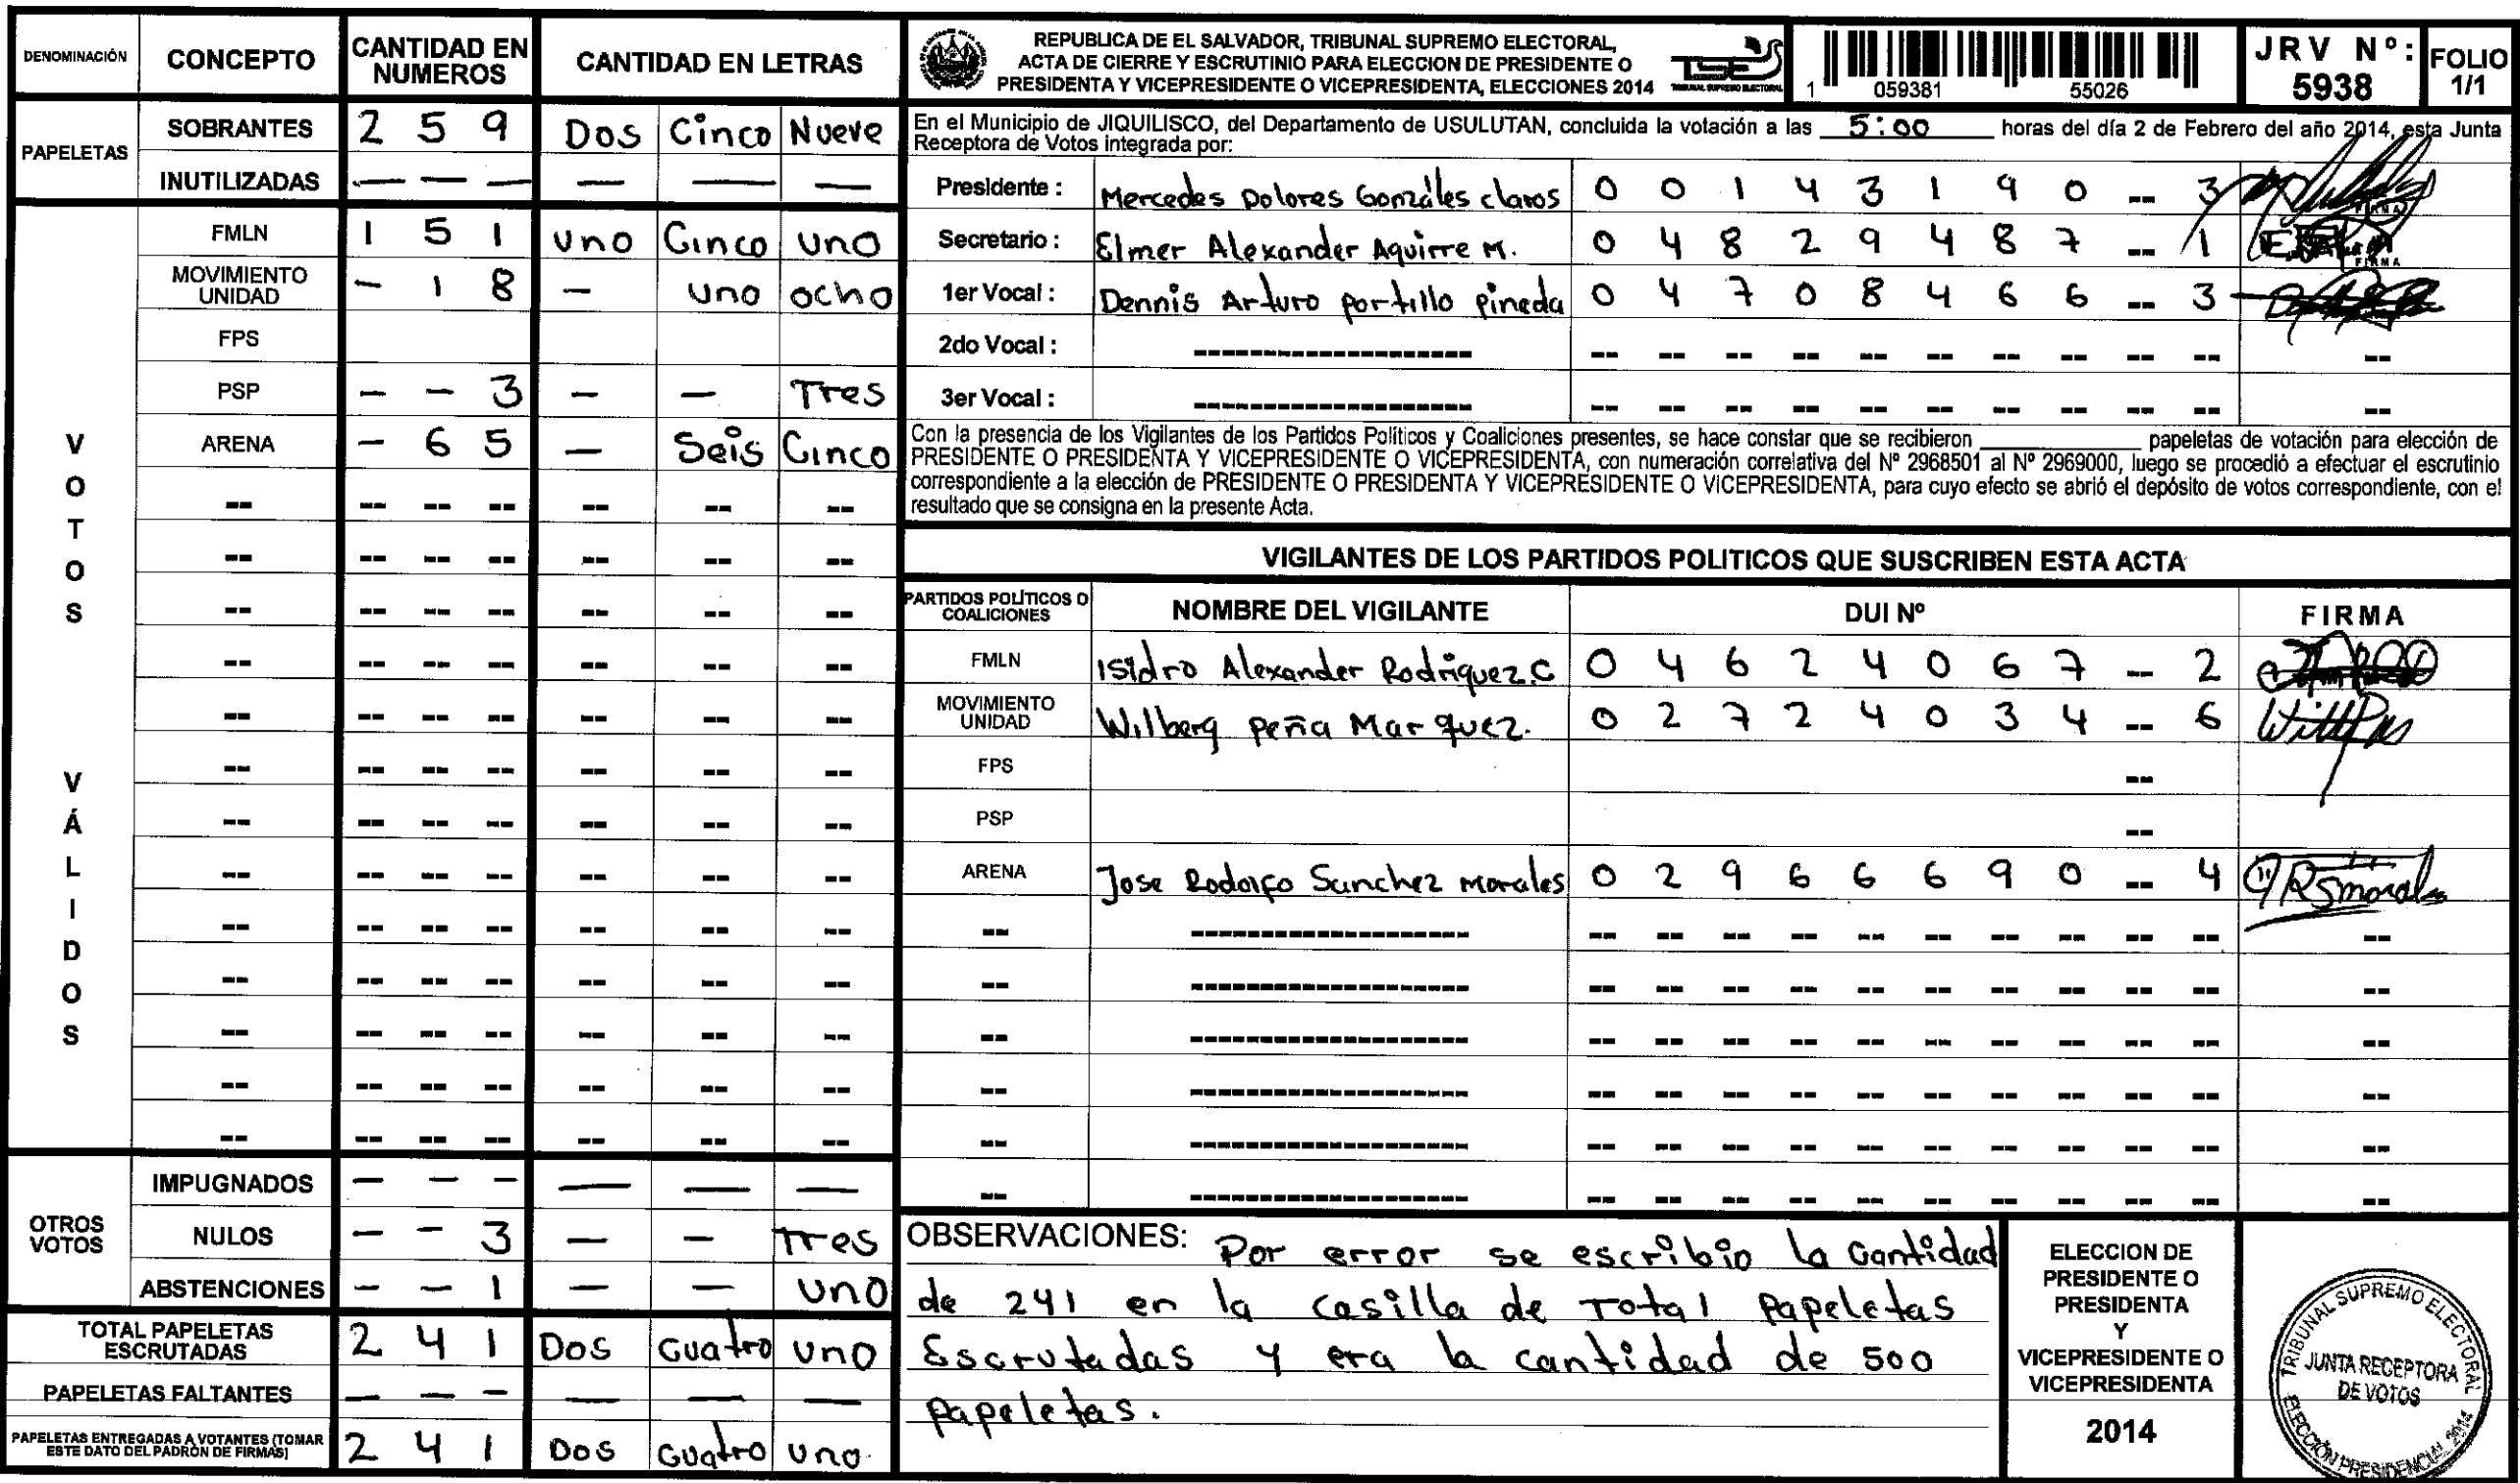 DENOMINACIÓN CONCEPTO CANTIDAD EN NUMEROS CANTIDAD EN LETRAS
PAPELETAS
SOBRANTES 2 5 9 Dos Cinco Nueve
INUTILIZADAS — — — — — —
VOTOS VÁLIDOS
FMLN 1 5 1 uno Cinco uno
MOVIMIENTO UNIDAD - 1 8 - uno ocho
FPS
PSP - - 3 - - Tres
ARENA - 6 5 - Seis Cinco
OTROS VOTOS
IMPUGNADOS — — — — — —
NULOS - - 3 - - Tres
ABSTENCIONES - - 1 - - uno
TOTAL PAPELETAS ESCRUTADAS 2 4 1 Dos Cuatro uno
PAPELETAS FALTANTES — — — — — —
PAPELETAS ENTREGADAS A VOTANTES (TOMAR ESTE DATO DEL PADRÓN DE FIRMAS) 2 4 1 Dos Cuatro uno
REPUBLICA DE EL SALVADOR, TRIBUNAL SUPREMO ELECTORAL,
ACTA DE CIERRE Y ESCRUTINIO PARA ELECCION DE PRESIDENTE O
PRESIDENTA Y VICEPRESIDENTE O VICEPRESIDENTA, ELECCIONES 2014
TSE
TRIBUNAL SUPREMO ELECTORAL
1 059381 55026
JRV Nº: 5938
FOLIO 1/1
En el Municipio de JIQUILISCO, del Departamento de USULUTAN, concluida la votación a las 5:00 horas del día 2 de Febrero del año 2014, esta Junta
Receptora de Votos integrada por:
Presidente : Mercedes Dolores Gonzáles claros 0 0 1 4 3 1 9 0 -- 3 FIRMA
Secretario : Elmer Alexander Aguirre M. 0 4 8 2 9 4 8 7 -- 1 FIRMA
1er Vocal : Dennis Arturo portillo pineda 0 4 7 0 8 4 6 6 -- 3
2do Vocal :
3er Vocal :
Con la presencia de los Vigilantes de los Partidos Políticos y Coaliciones presentes, se hace constar que se recibieron ______ papeletas de votación para elección de
PRESIDENTE O PRESIDENTA Y VICEPRESIDENTE O VICEPRESIDENTA, con numeración correlativa del Nº 2968501 al Nº 2969000, luego se procedió a efectuar el escrutinio
correspondiente a la elección de PRESIDENTE O PRESIDENTA Y VICEPRESIDENTE O VICEPRESIDENTA, para cuyo efecto se abrió el depósito de votos correspondiente, con el
resultado que se consigna en la presente Acta.
VIGILANTES DE LOS PARTIDOS POLITICOS QUE SUSCRIBEN ESTA ACTA
PARTIDOS POLÍTICOS O COALICIONES NOMBRE DEL VIGILANTE DUI Nº FIRMA
FMLN Isidro Alexander Rodriguez.C 0 4 6 2 4 0 6 7 -- 2
MOVIMIENTO UNIDAD Wilberg Peña Marquez. 0 2 7 2 4 0 3 4 -- 6
FPS --
PSP --
ARENA Jose Rodolfo Sanchez morales 0 2 9 6 6 6 9 0 -- 4
OBSERVACIONES: Por error se escribio la Cantidad
de 241 en la casilla de Total Papeletas
Escrutadas y era la cantidad de 500
Papeletas.
ELECCION DE
PRESIDENTE O
PRESIDENTA
Y
VICEPRESIDENTE O
VICEPRESIDENTA
2014
TRIBUNAL SUPREMO ELECTORAL
JUNTA RECEPTORA
DE VOTOS
ELECCIÓN PRESIDENCIAL 2014